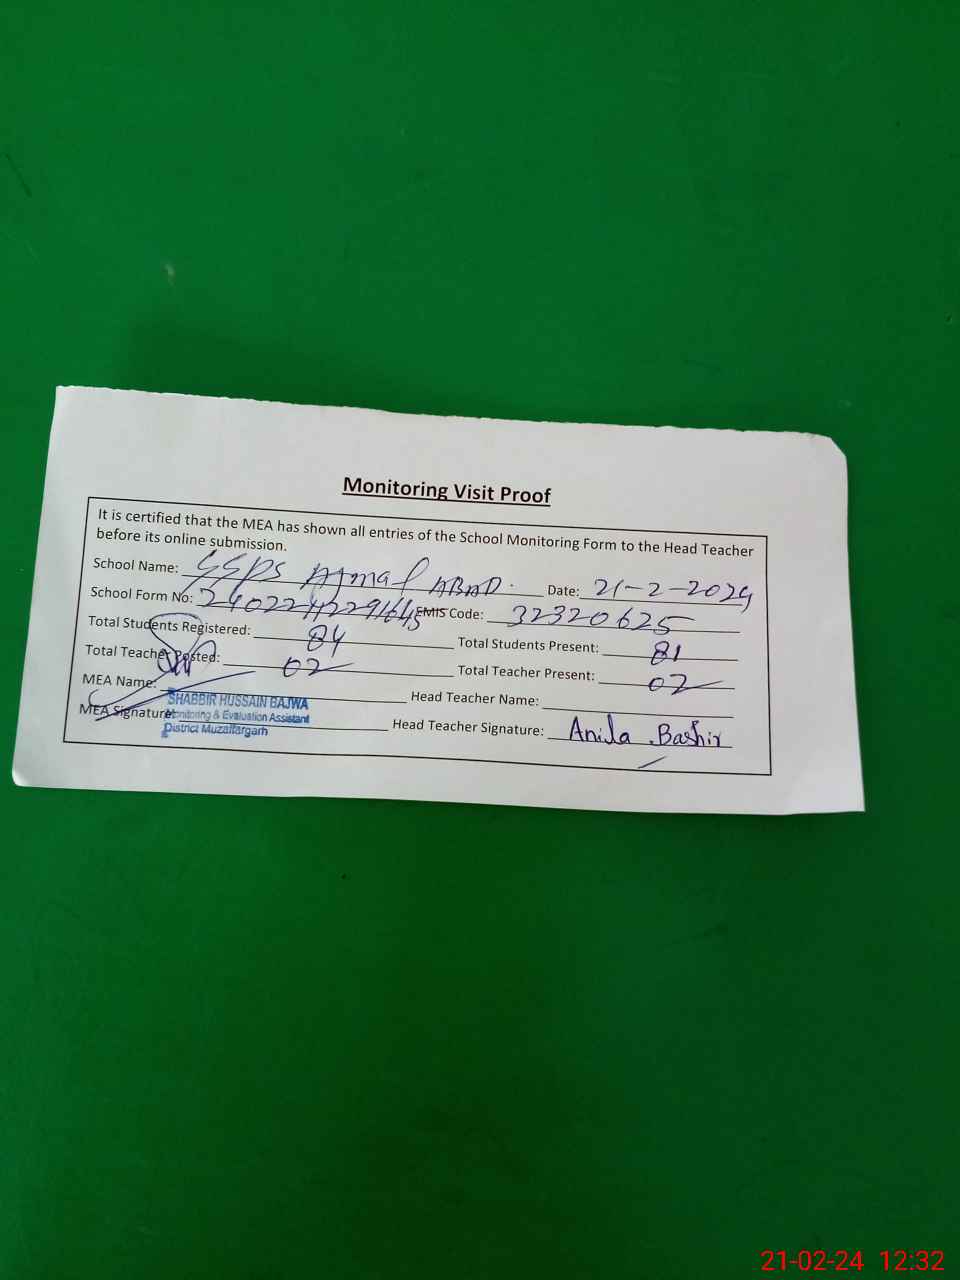 Monitoring Visit Proof
It is certified that the MEA has shown all entries of the School Monitoring Form to the Head Teacher
before its online submission.
School Name: GGPS Ajmal ABAD. Date: 21-2-2024
School Form No: EMIS Code: 32320625
Total Students Registered: 84 Total Students Present: 81
Total Teacher Posted: 02 Total Teacher Present: 02
MEA Name: Head Teacher Name:
SHABBIR HUSSAIN BAJWA
MEA Signature: Monitoring & Evaluation Assistant Head Teacher Signature: Anila Bashir
District Muzaffargarh
21-02-24 12:32